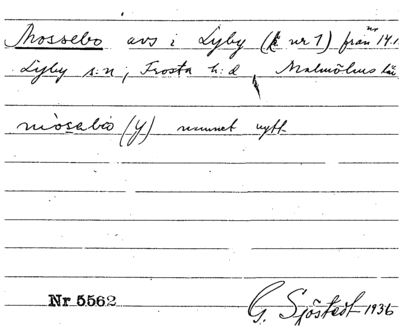 Mossebo avs i Lyby (k nr 1) från nr 14.1
Lyby s:n, Frosta h:d, Malmöhus län
mòsabo (y) namnet nytt
Nr 5562 G. Sjöstedt 1936